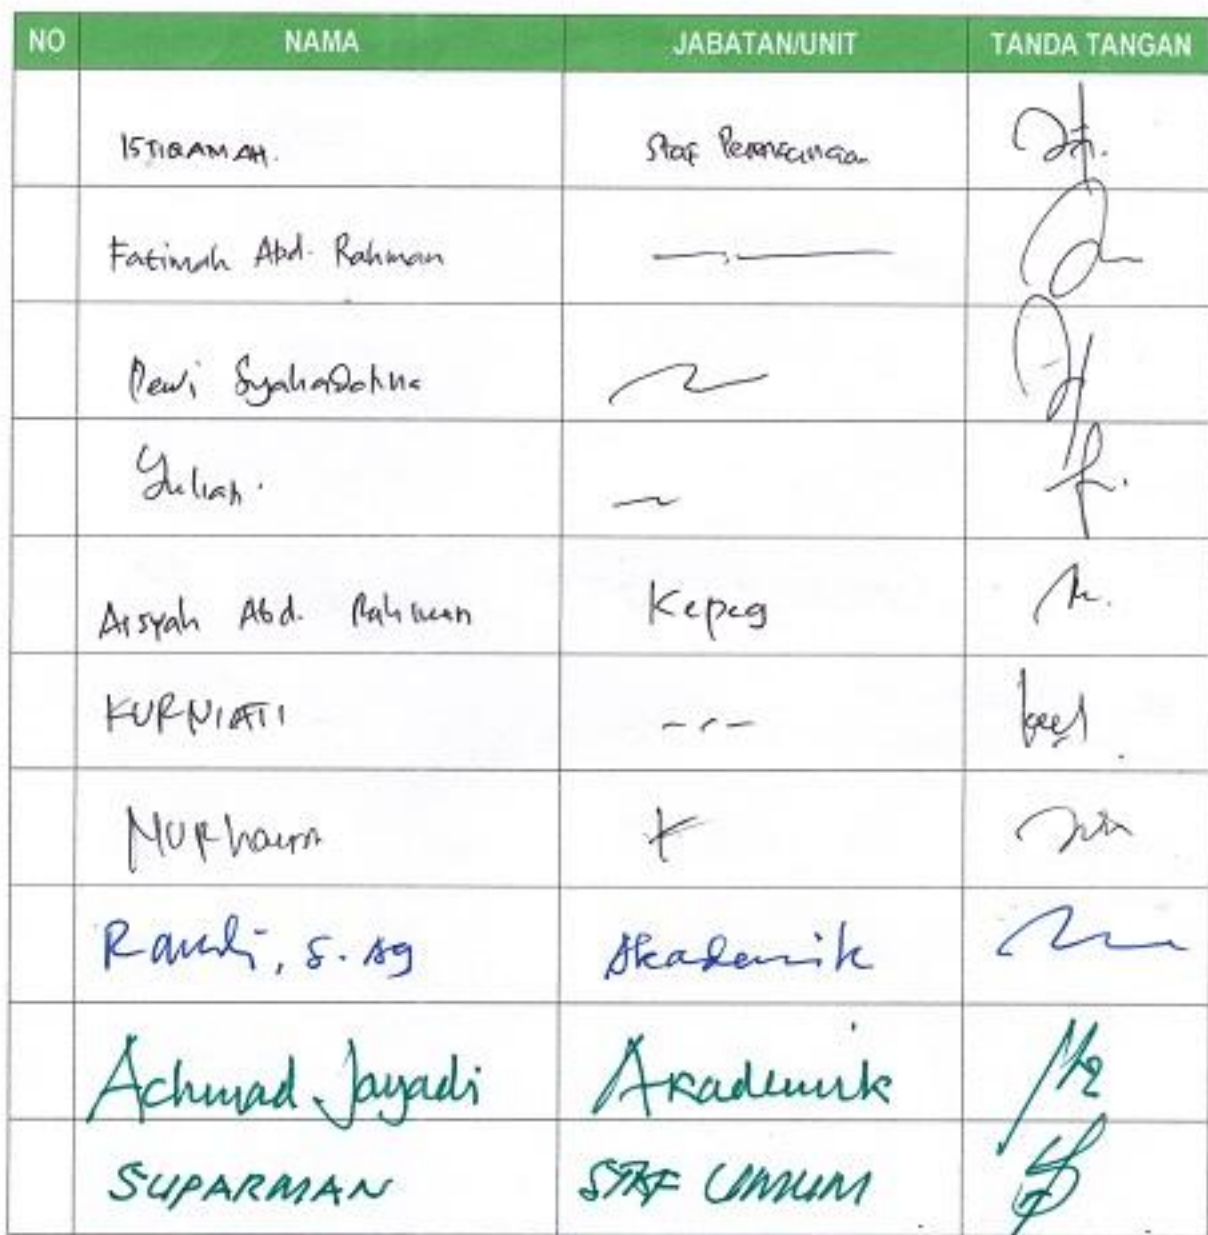 NO NAMA JABATAN/UNIT TANDA TANGAN
ISTIQAMAH. Staf Perencanaan
Fatimah Abd. Rahman
Dewi
Yuliah.
Aisyah Abd. Rahman Kepeg
KURNIATI
NURhaym
S.Ag Akademik
Achmad Jayadi Akademik
SUPARMAN STAF UMUM